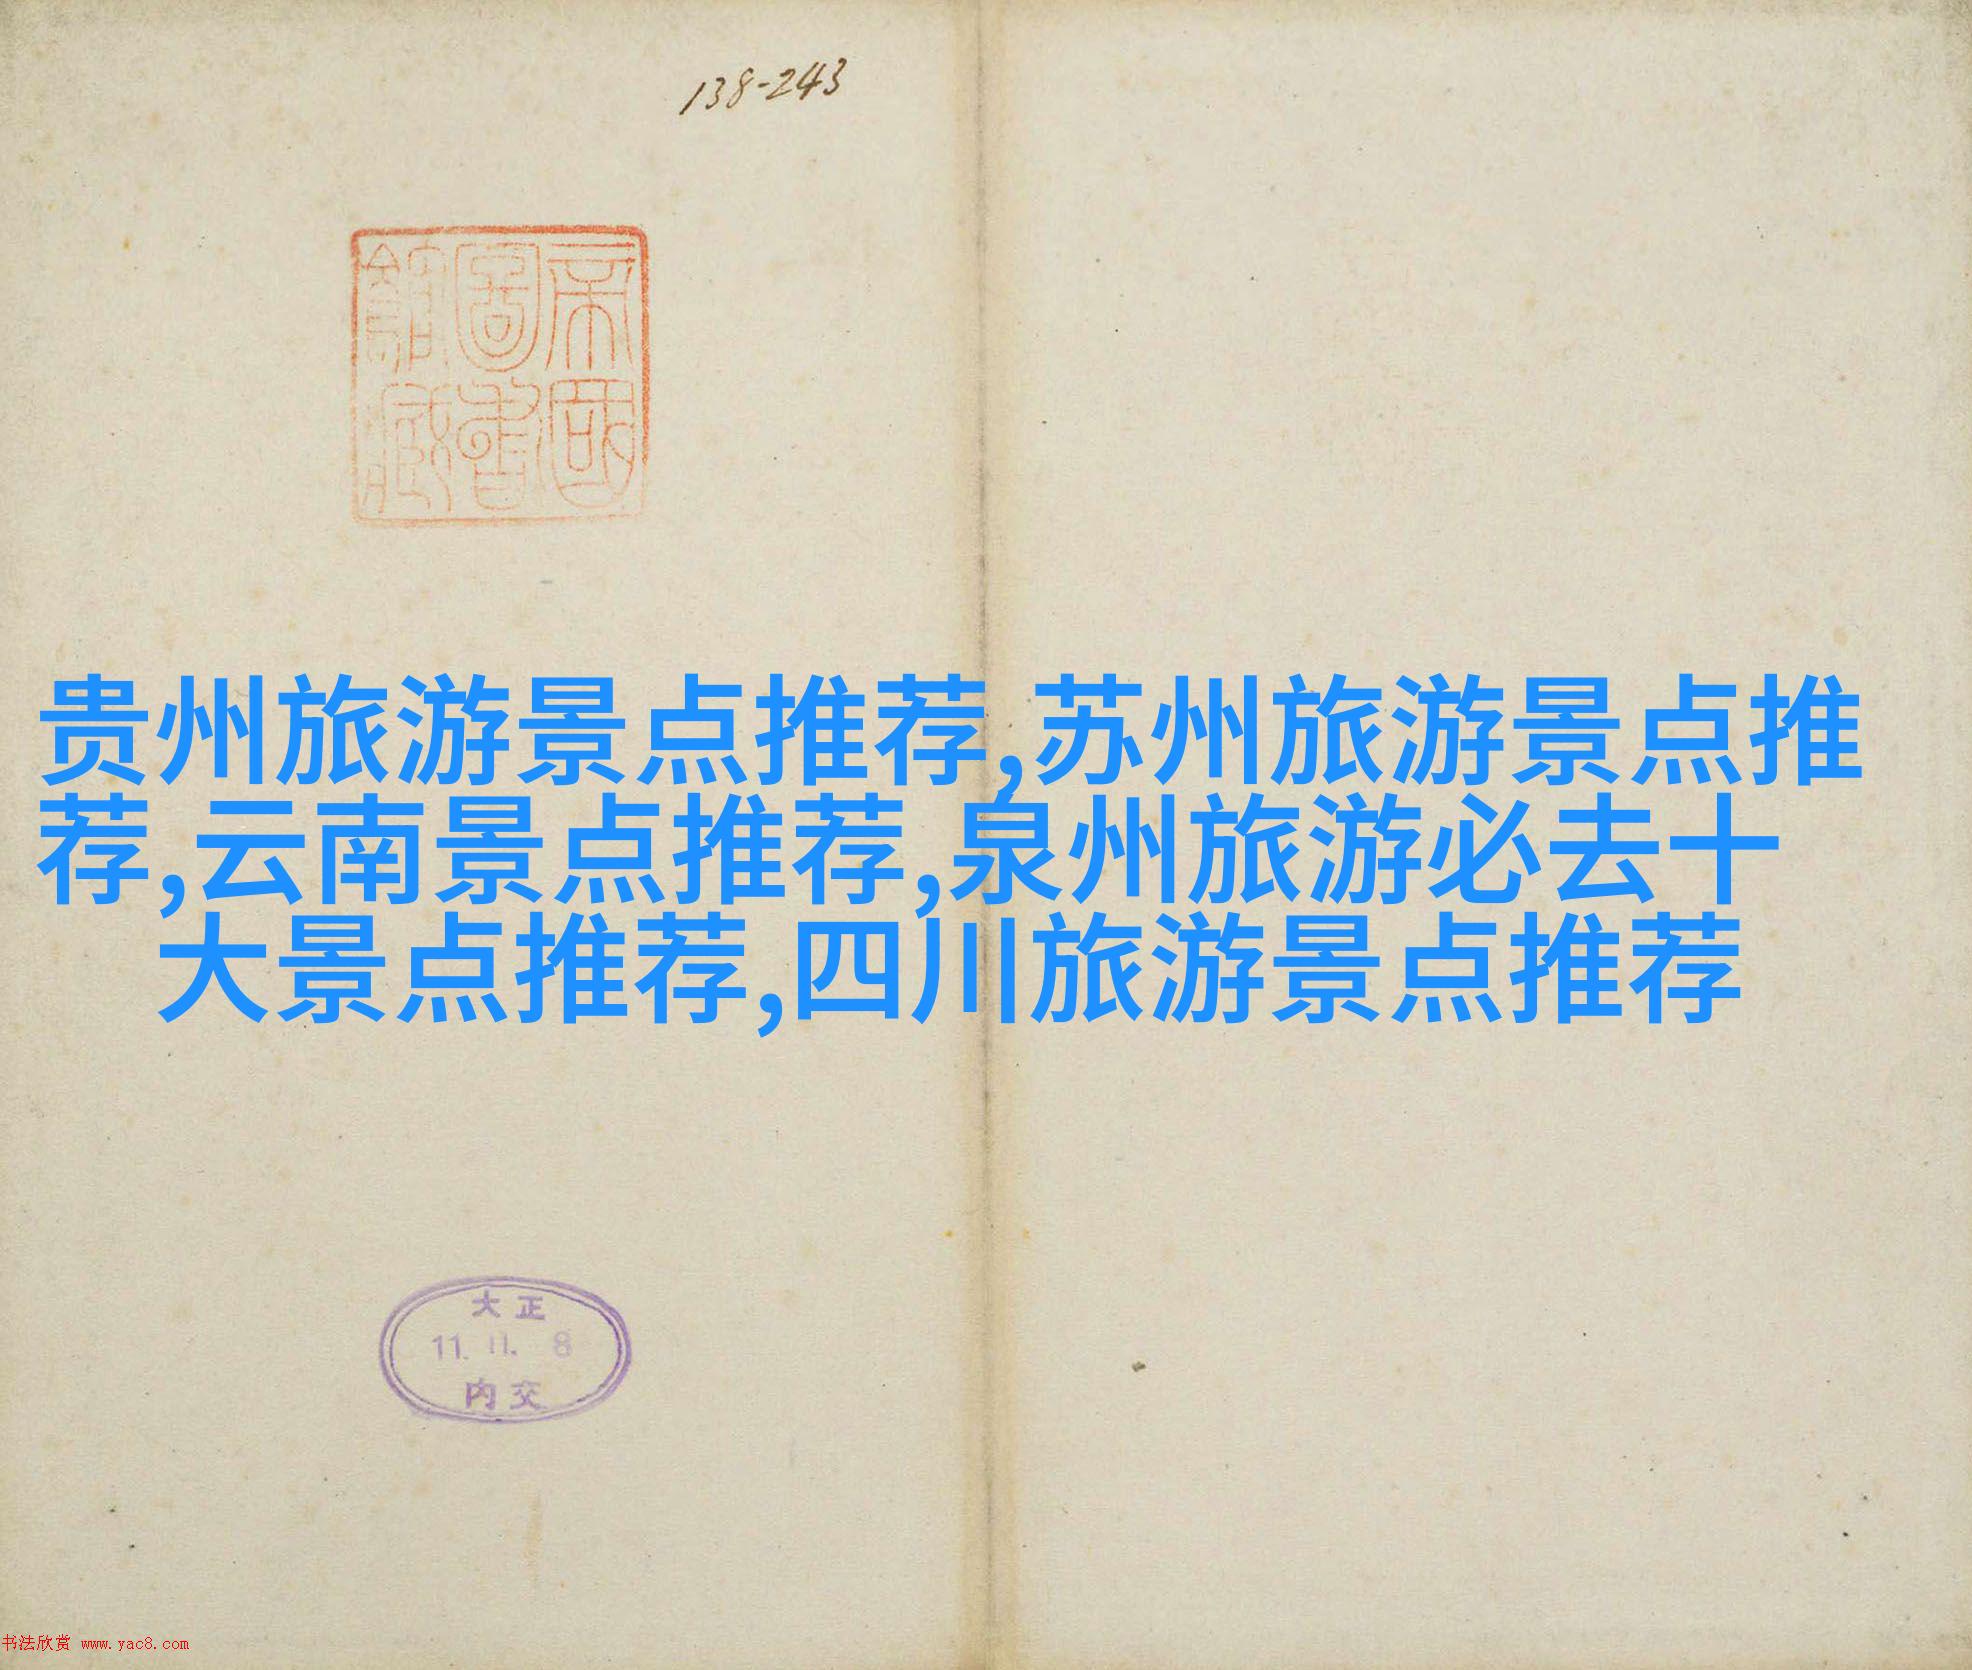 138-243
帝國
圖書
館藏
贵州旅游景点推荐,苏州旅游景点推
荐,云南景点推荐,泉州旅游必去十
大景点推荐,四川旅游景点推荐
大正
11. 11. 8
内交
书法欣赏 www.yac8.com